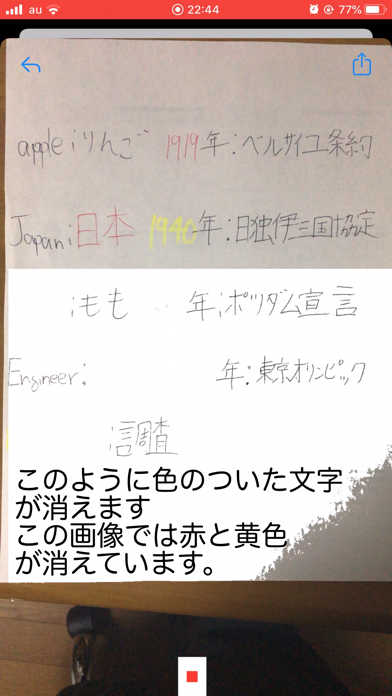 au 22:44 77%
apple:りんご 1919年:ベルサイユ条約
Japan:日本 1940年:日独伊三国協定
:もも 年:ポツダム宣言
Engineer: 年:東京オリンピック
:調査
このように色のついた文字
が消えます
この画像では赤と黄色
が消えています。